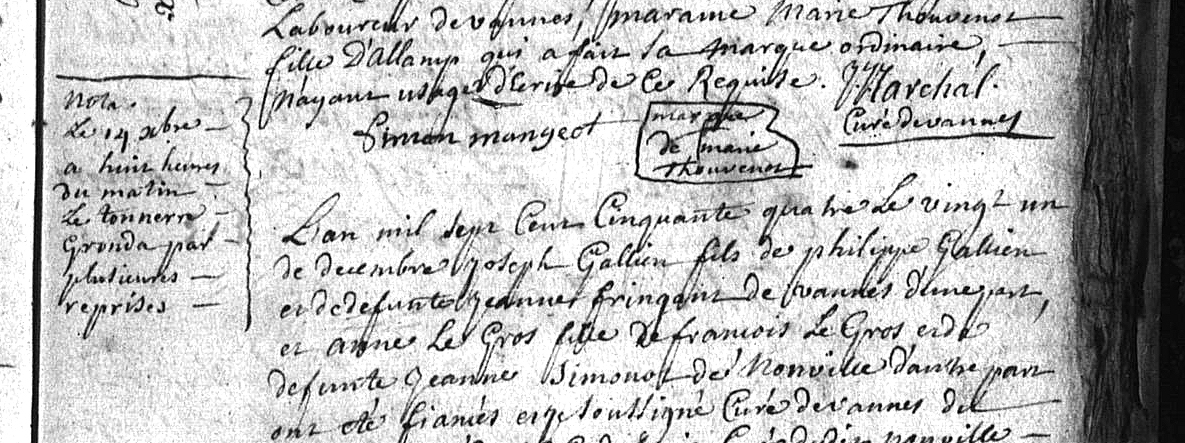 Laboureur de vannes, maraine Marie Thouvenot
fille D'Allamp qui a fait sa marque ordinaire,
nayant usage d'Ecrire de Ce Requise. J Marchal.
Curé de vannes
Simon mangeot
marque
de marie
Thouvenot
Nota.
Le 14 xbre
a huit heures
du matin
Le tonnerre
Gronda par
plusieures
reprises
L'an mil sept Cent Cinquante quatre Le vingt un
de decembre Joseph Gallien fils de philippe Gallien
et de defunte Jeanne fringant de vannes d'une part,
et anne Le Gros fille de francois Le Gros et de
defunte Jeanne Simonot de Nonville d'autre part
ont eté fiancés et je soussigné Curé de vannes